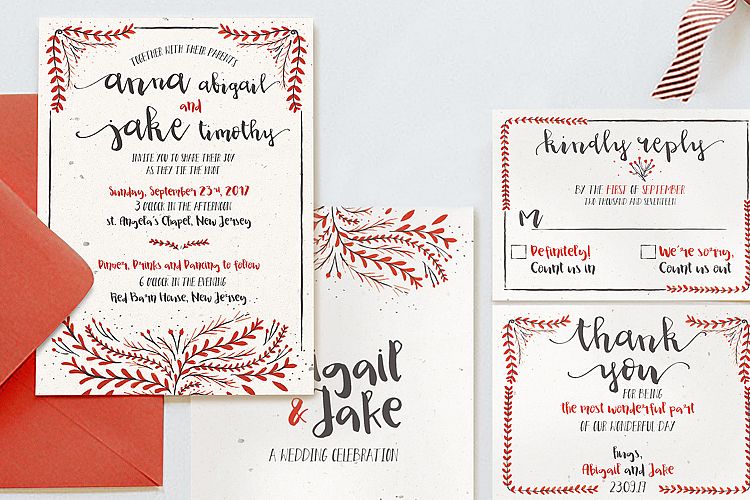 TOGETHER WITH THEIR PARENTS
anna abigail
and
jake timothy
INVITE YOU TO SHARE THEIR JOY
AS THEY TIE THE KNOT
Sunday, September 23rd, 2017
3 O'CLOCK IN THE AFTERNOON
St. Angela's Chapel, New Jersey
Dinner, Drinks and Dancing to follow
6 O'CLOCK IN THE EVENING
Red Barn House, New Jersey
& Jake
A WEDDING CELEBRATION
kindly reply
BY THE FIRST OF SEPTEMBER
TWO THOUSAND AND SEVENTEEN
M
Definitely!
Count us in
We're sorry,
Count us out
thank
you
FOR BEING
the most wonderful part
OF OUR WONDERFUL DAY
Hugs,
Abigail and Jake
23.09.17